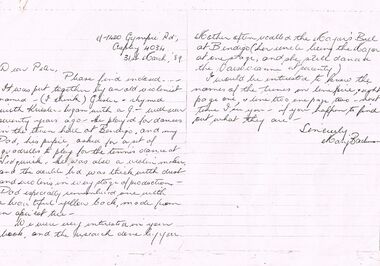 11-1420 Gympie Rd,
Aspley 4034
31st March, '89.
Dear Peter,
Please find enclosed ...
It was put together by an old violinist
named - (I think) - dyed
with - began with a G - well over
seventy years ago. He played for dances
in the town hall at Bendigo, and my
Dad, his pupil, asked for a set of
quadrilles to play for the tennis dance at
Sedgwick. He was also a violin maker,
and the double bed was thick with dust
and violins in every stage of production -
Dad especially remembered one with
a beautiful yellow back, made from
an apricot tree -
We were very interested in your
book, and the research done by you.
Mother often recalled the Mayor's Ball
at Bendigo (her uncle being the Mayor
at one stage, and she still danced
the Varsovienne at seventy)
I would be interested to know the
names of the tunes on line five, eight
page one, & line two page two - next
time I see you - if you happen to find
out what they are -
Sincerely
Mary